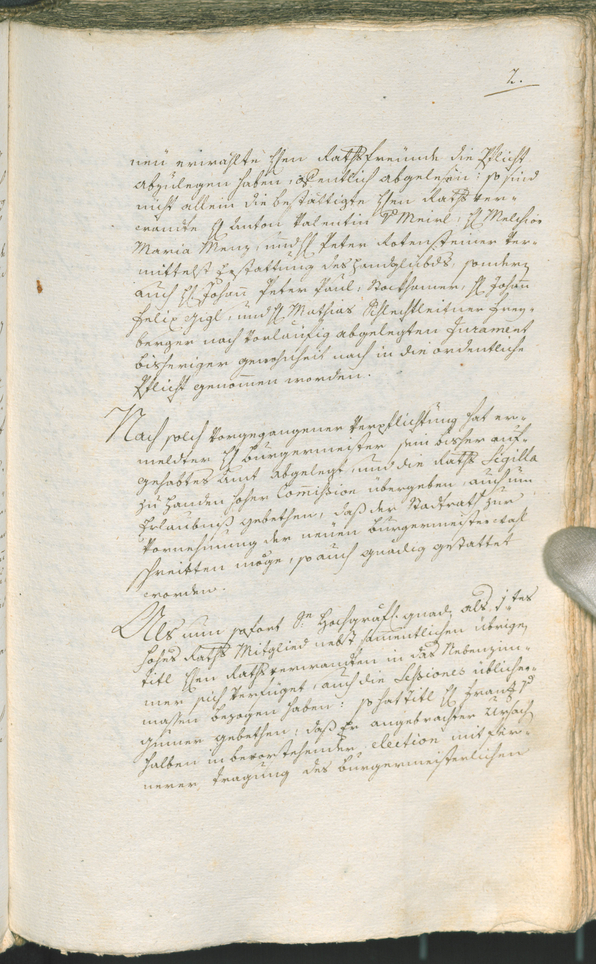 2.
neü erwählte Hen Rathsfreünde die Pflicht
abzulegen haben, öffentlich abgelesen: so sind
nicht allein die bestättigte Hen Raths ver-
wandte H Anton Valentin V Meirl, H Melchior
Maria Menz, und H Peter Rotensteiner ver-
mittelst Erstattung des Handglübds, sondern
auch H Johann Peter Paul Stockhamer, H Johann
Felix Gigl, und H Mathias Schlechtleitner
berger nach vorläufig abgelegten Jurament
bisheriger gewohnheit nach in die ordentliche
Pflicht genomen worden.
Nach solch vorgegangener Verpflichtung hat er-
meldter H Burgermeister sein bisher auf-
gehabtes Amt abgelegt, und die Raths Sigilla
zu Handen hoher Commission übergeben, auch um
Erlaubniß gebethen, daß der Stadtrath zur
Vornehmung der neüen Burgermeister wal
schreitten möge, so auch gnädig gestattet
worden.
Als nun sofort Se Hochgräfl. gnad. als 1tes
hohes Raths Mitglied nebst samentlichen übrigen
titl Hen Rathsverwandten in das Nebenzim-
mer sich verfüget, auch die Sessiones üblicher-
massen bezogen haben: so hat titl H Franz
gumer gebethen; daß Er angebrachter Ursach
halben in bevorstehender election mit Fer-
nerer Tragung des Burgermeisterlichen